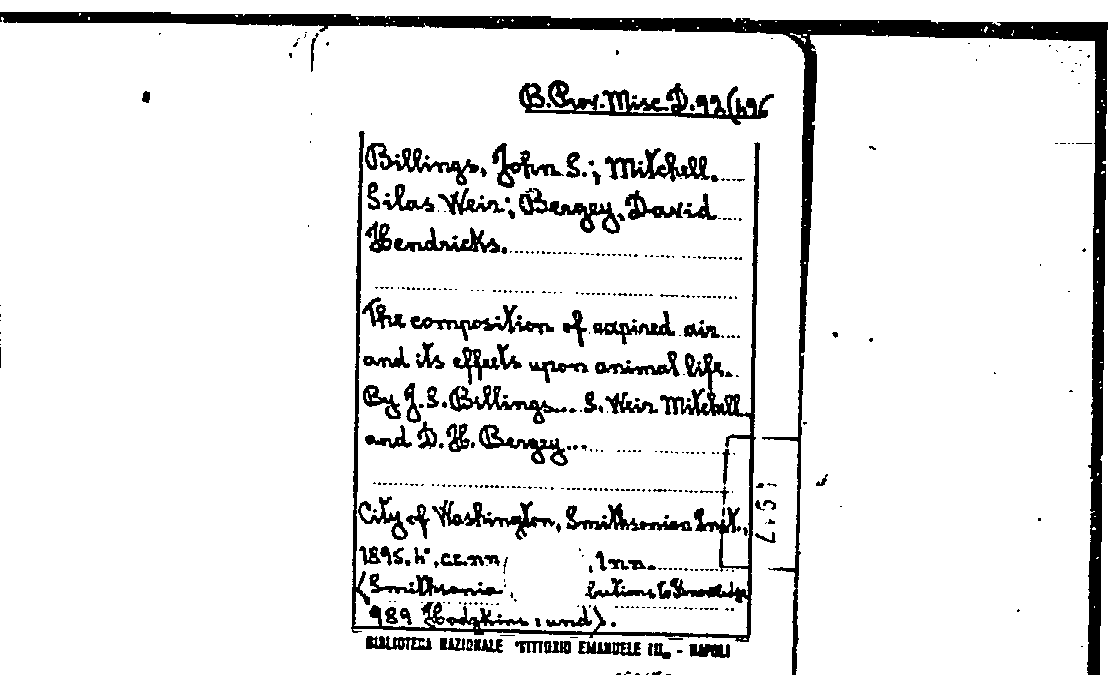 B. Prov. Misc. D. 92(496
Billings, John S.; Mitchell.
Silas Weir; Bergey, David
Hendricks.
The composition of expired air
and its effects upon animal life.
By J. S. Billings... S. Weir Mitchell
and D. H. Bergey...
City of Washington, Smithsonian Inst.,
1895. 4°,
(Smithsonia butions to Knowledge
989 Hodgkins und).
BIBLIOTECA NAZIONALE "VITTORIO EMANUELE III„ - NAPOLI